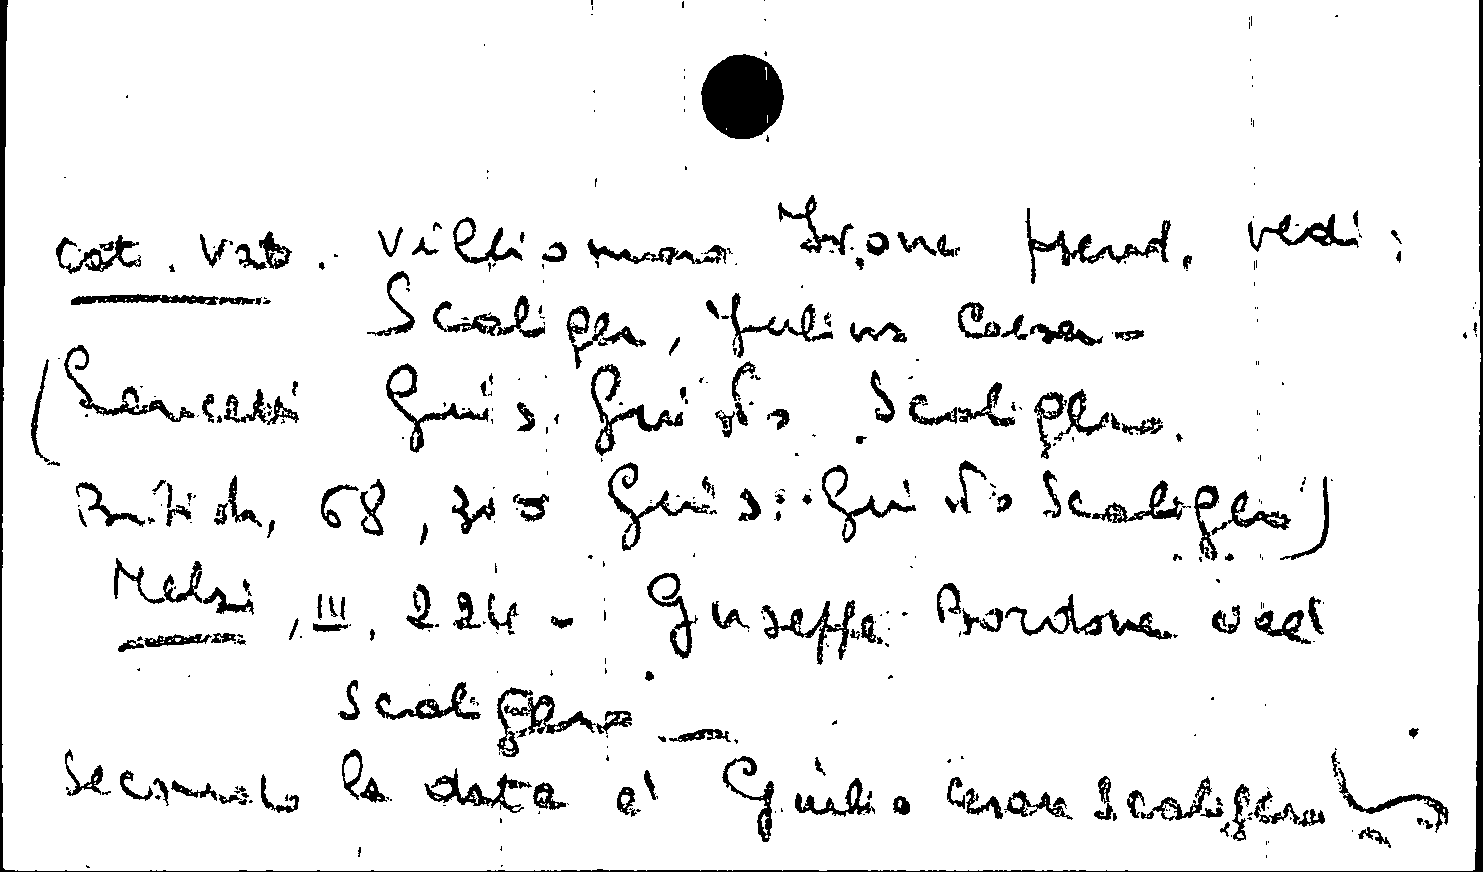 Cat. Vat. Villiomaro Ivone pseud. vedi:
Scaliger, Julius Caesar -
(Lancetti Gius. Giusto Scaligero.
British, 68, 300 Gius. Giusto Scaligero)
Melzi, III, 224 - Giuseppe Bordone vedi
Scaligero —
Secondo la data è Giulio Cesare Scaligero